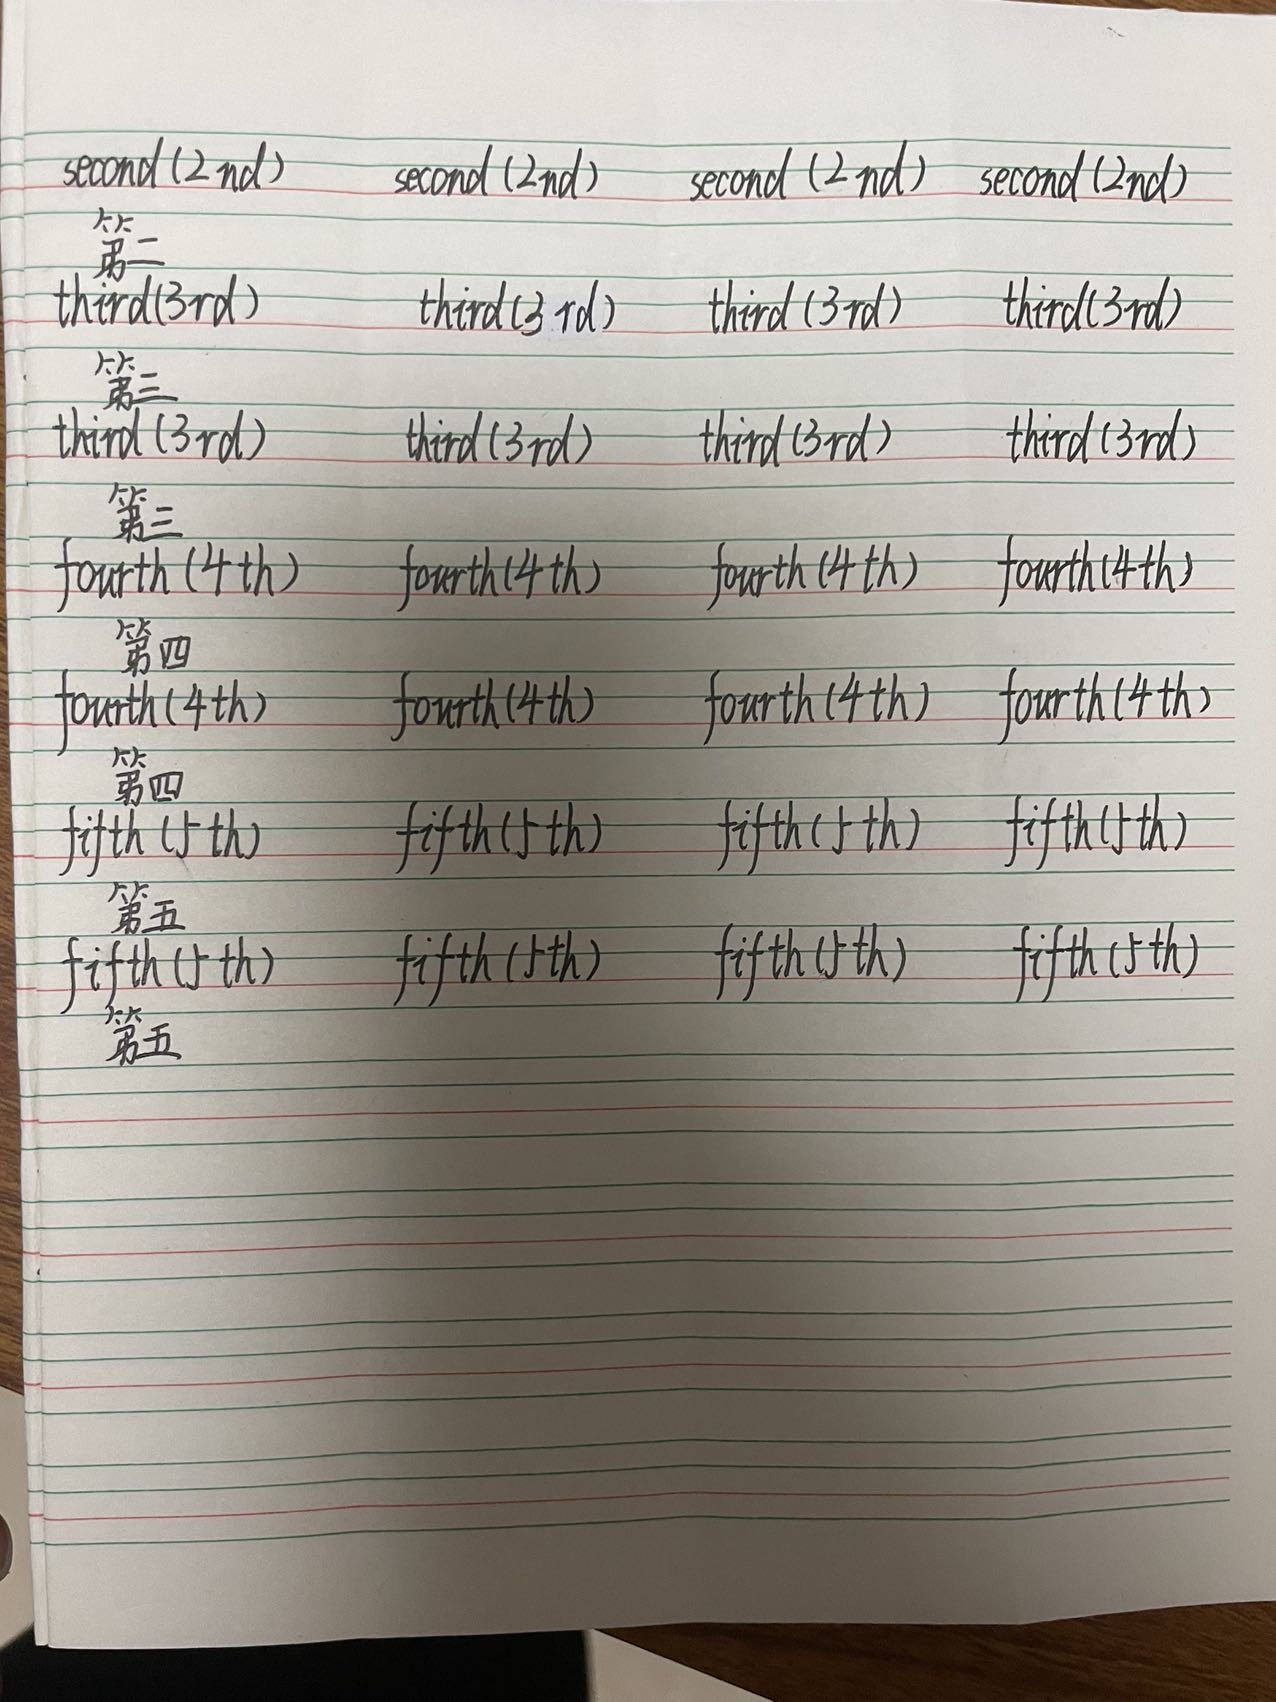 second(2nd) second(2nd) second(2nd) second(2nd)
第二
third(3rd) third(3rd) third(3rd) third(3rd)
第三
third(3rd) third(3rd) third(3rd) third(3rd)
第三
fourth(4th) fourth(4th) fourth(4th) fourth(4th)
第四
fourth(4th) fourth(4th) fourth(4th) fourth(4th)
第四
fifth(5th) fifth(5th) fifth(5th) fifth(5th)
第五
fifth(5th) fifth(5th) fifth(5th) fifth(5th)
第五